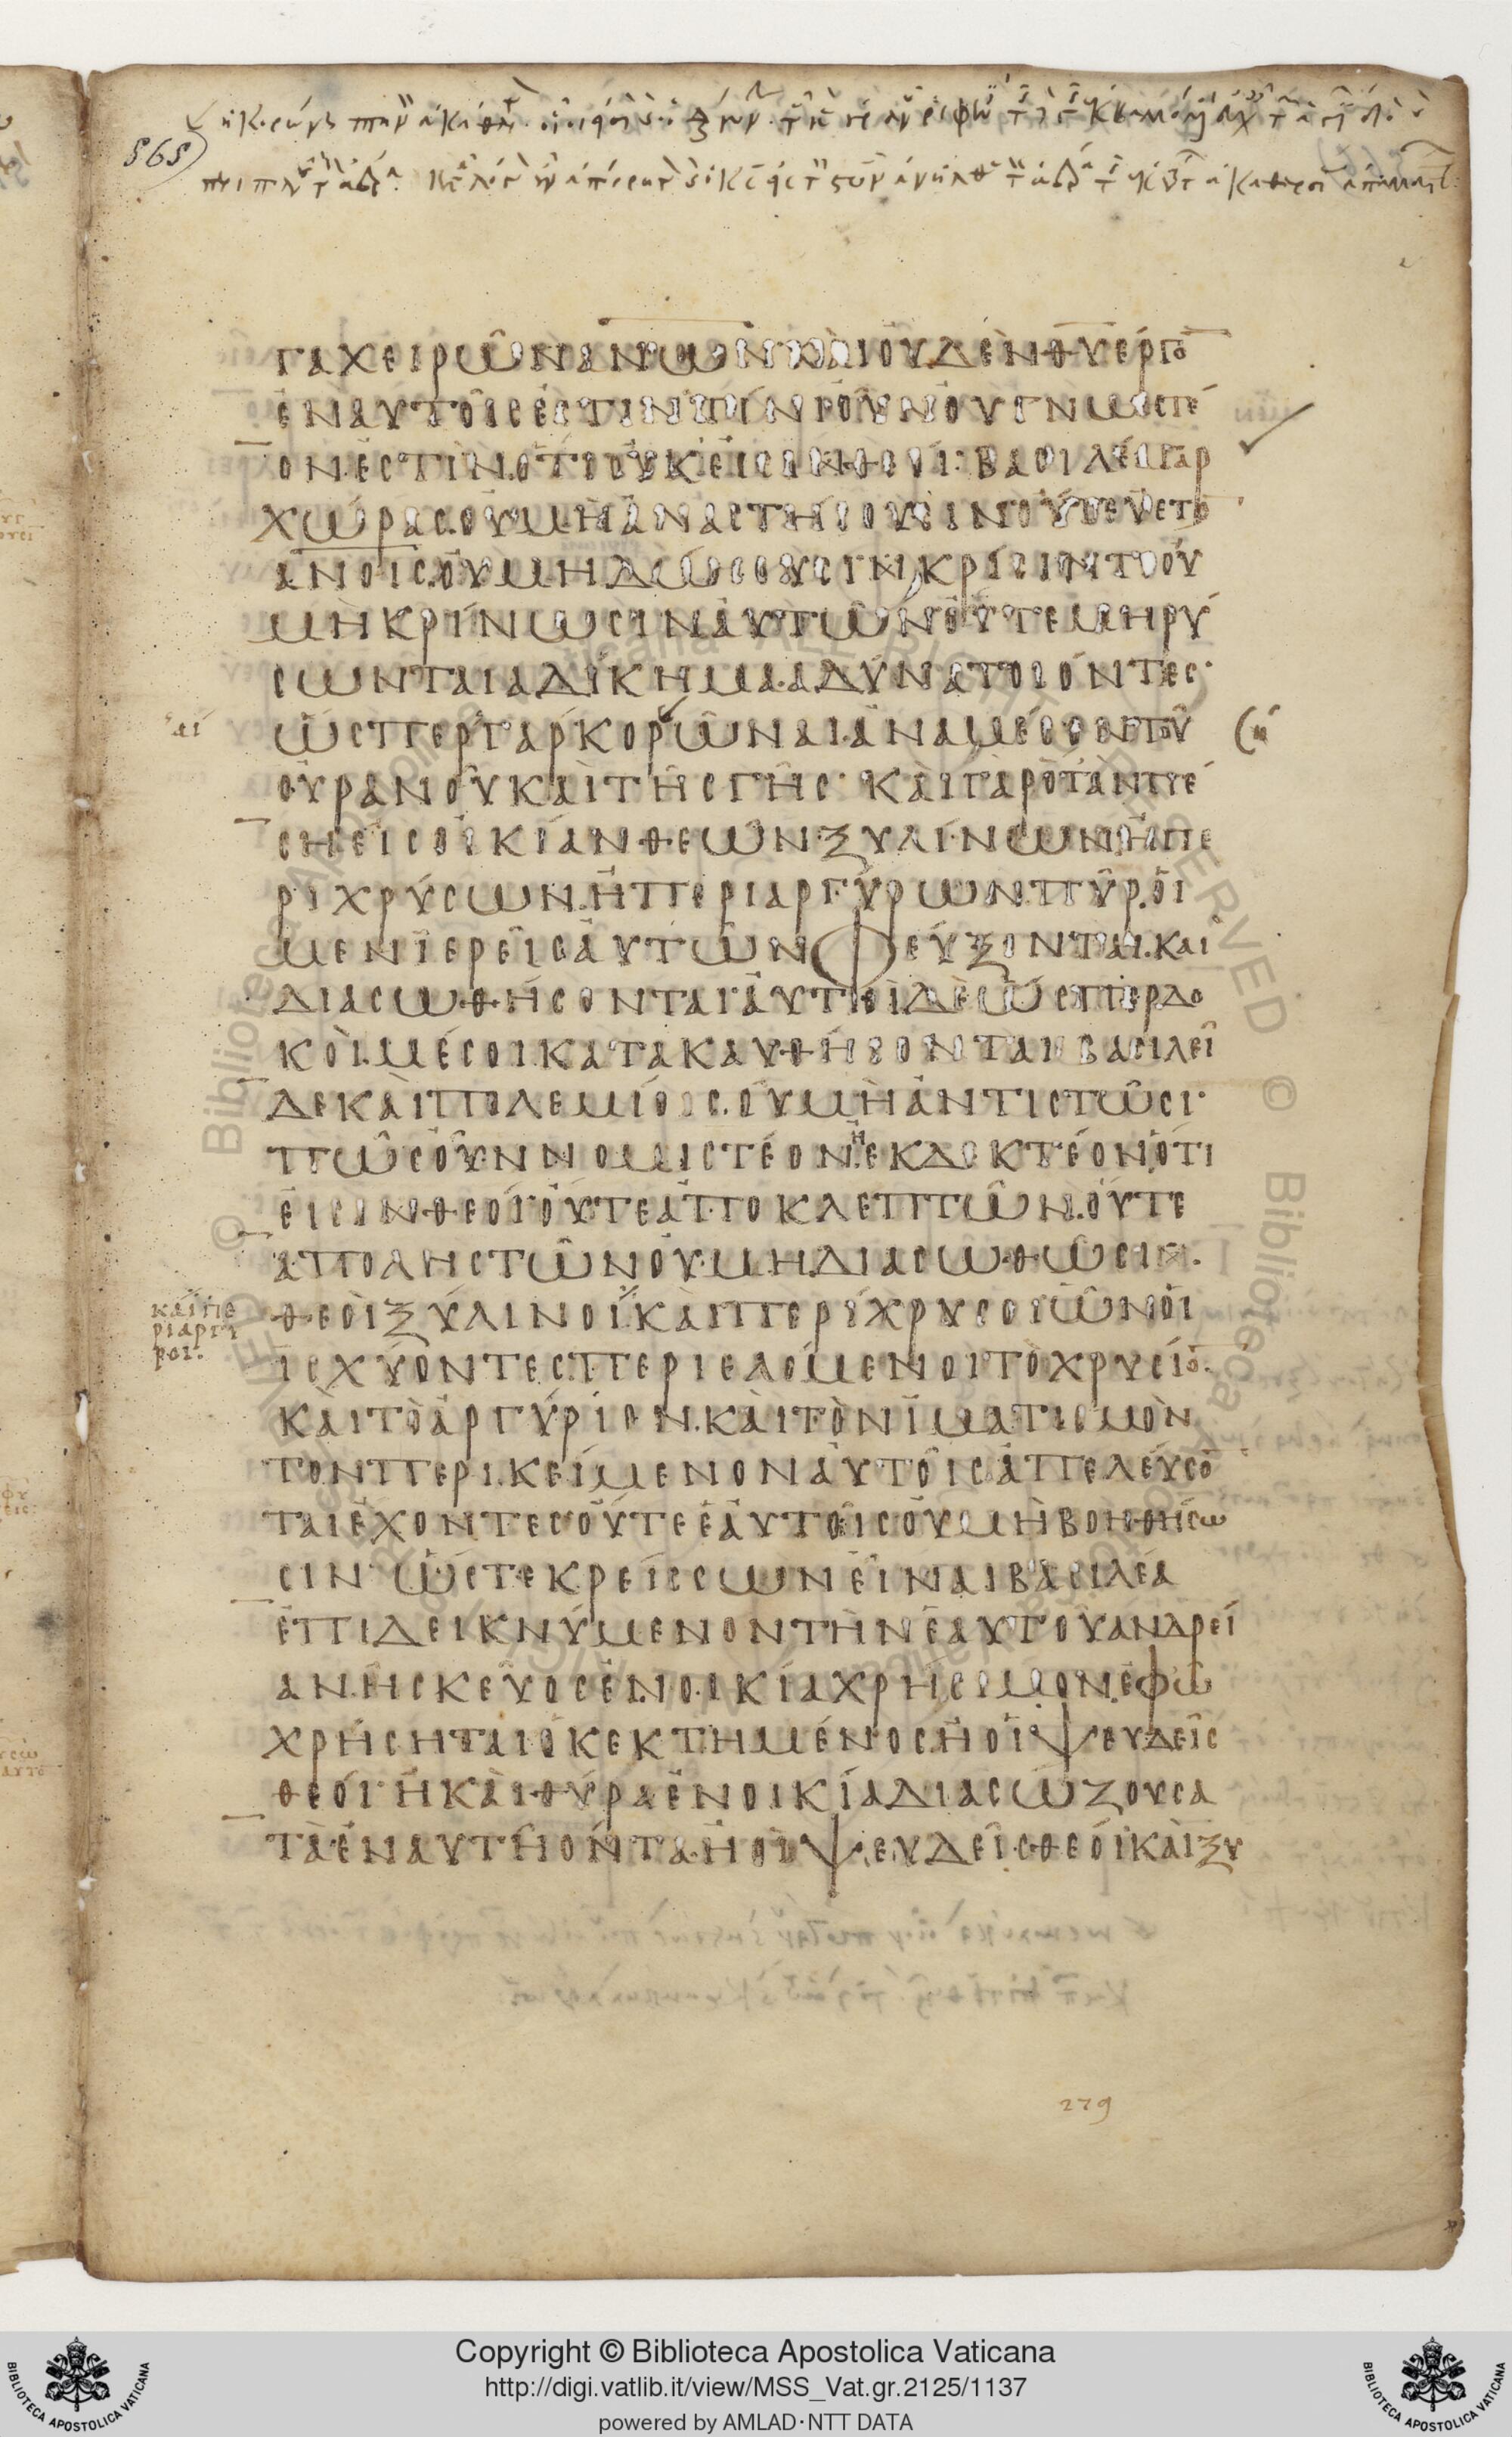 565
ΓΑΧΕΙΡΩ͂ΝΑΝΩΝΚΑῚΟΥΔῈΝΘΥΕΡΓΟ̅
ἘΝΑΥΤΟΙ͂ϹἘϹΤΙΝΤΙΝΙΟΥ͂ΝΟΥΓΝΩϹΤΕ
ΟΝ.ΕϹΤΙΝ.ὍΤΙΟΥΚΕΙϹΙΝΘΟΙ· ΒΑϹΙΛΕΑΓΑΡ
ΧΩΡΑϹ.ΟΥΜΗἈΝΑϹΤΗϹΟΥϹΙΝΟΥΤΕΥΕΤΟ
ΑΝΟΙϹ.ΟΥΜΗΔΩϹΟΥϹΙΝ,ΚΡΙϹΙΝΤΕΟΥ
ΜῊΚΡΙΝΩϹΙΝΑΥΤΩ͂ΝΟΥΤΕΜΗΡΥ
ϹΩΝΤΑΙΑΔΙΚΗΜΑ.ΑΔΥΝΑΤΟΙΟΝΤΕϹ·
ΩϹΠΕΡΓΑΡΚΟΡΩ͂ΝΑΙ.ἈΝΑΜΕϹΟΝΤΟΥ͂
ΟΥΡΑΝΟΥ͂ΚΑῚΤΗ͂ϹΓΗ͂Ϲ· ΚΑῚΓΑΡὉΤΑΝΠΕ
ϹΗΕΙϹΟΙΚΙΑΝΘΕΩ͂Ν·ΞΥΛΙΝΩΝΗΠΕ
ΡΙΧΡΥϹΩΝ.ΗΠΕΡΙΑΡΓΥΡΩΝ.ΠΥ͂Ρ.ΟΙ
ΜΕΝΙΕΡΕΙ͂ϹΑΥΤΩ͂ΝΦΕΥΞΟΝΤΑΙ.ΚΑΙ
ΔΙΑϹΩΘΗϹΟΝΤΑΙ·ΑΥΤΟΙΔῈΩϹΠΕΡΔΟ
ΚΟῚ.ΜΕϹΟΙΚΑΤΑΚΑΥΘΗϹΟΝΤΑΙ· ΒΑϹΙΛΕΙ͂
ΔΕΚΑῚΠΟΛΕΜΙΟΙϹ.ΟΥΜῊΑΝΤΙϹΤΩ͂ϹΙ·
ΠΩ͂ϹΟΥ͂ΝΝΟΜΙϹΤΕΟΝ.ΗΕΚΔΕΚΤΕΟΝ.ὍΤΙ
ΕΙϹΙΝΘΕΟΙ·ΟΥΤΕΑΠΟΚΛΕΠΤΩ͂Ν.ΟΥΤΕ
ΑΠΟΛΗϹΤΩ͂ΝΟΥ.ΜΗ.ΔΙΑϹΩΘΩ͂ϹΙΝ.
ΘΕΟῚΞΥΛΙΝΟΙΚΑῚΠΕΡΙΧΡΥϹΟΙΩ͂ΝΟΙ
καὶ πε
ριαργύ
ροι.
ΙϹΧΥΟΝΤΕϹ.ΠΕΡΙΕΛΟΜΕΝΟΙΤῸΧΡΥϹΙΟ̅.
ΚΑῚΤῸΑΡΓΥΡΙΟΝ.ΚΑῚΤῸΝΙΜΑΤΙϹΜῸΝ
ΤΟΝΠΕΡΙ.ΚΕΙΜΕΝΟΝΑΥΤΟΙ͂ϹΑΠΕΛΕΥϹΟ̅
ΤΑΙΕΧΟΝΤΕϹ·ΟΥΤΕΕΑΥΤΟΙ͂ϹΟΥΜῊΒΟΗΘΗϹΩ
ϹΙΝ· ΩϹΤΕΚΡΕΙϹϹΩΝΕΙ͂ΝΑΙΒΑϹΙΛΕΑ
ΕΠΙΔΕΙΚΝΥΜΕΝΟΝΤῊΝΕΑΥΤΟΥ͂ΑΝΔΡΕΙ
ΑΝ.ΗϹΚΕΥ͂ΟϹΕΝ.ΟΙΚΙΑΧΡΗϹΙΜΟΝ.ΕΦΩ
ΧΡΗϹΗΤΑΙΟΚΕΚΤΗΜΕΝΟϹ.ΗΟΙΨΕΥΔΕΙ͂Ϲ
ΘΕΟΙ·ΗΚΑῚΘΥΡΑΕΝΟΙΚΙΑΔΙΑϹΩΖΟΥϹΑ
ΤᾺΕΝΑΥΤΗΟΝΤΑ.ΗΟΙΨΕΥΔΕΙ͂ϹΘΕΟΙΚΑῚΞΥ
279
Copyright © Biblioteca Apostolica Vaticana
http://digi.vatlib.it/view/MSS_Vat.gr.2125/1137
powered by AMLAD·NTT DATA